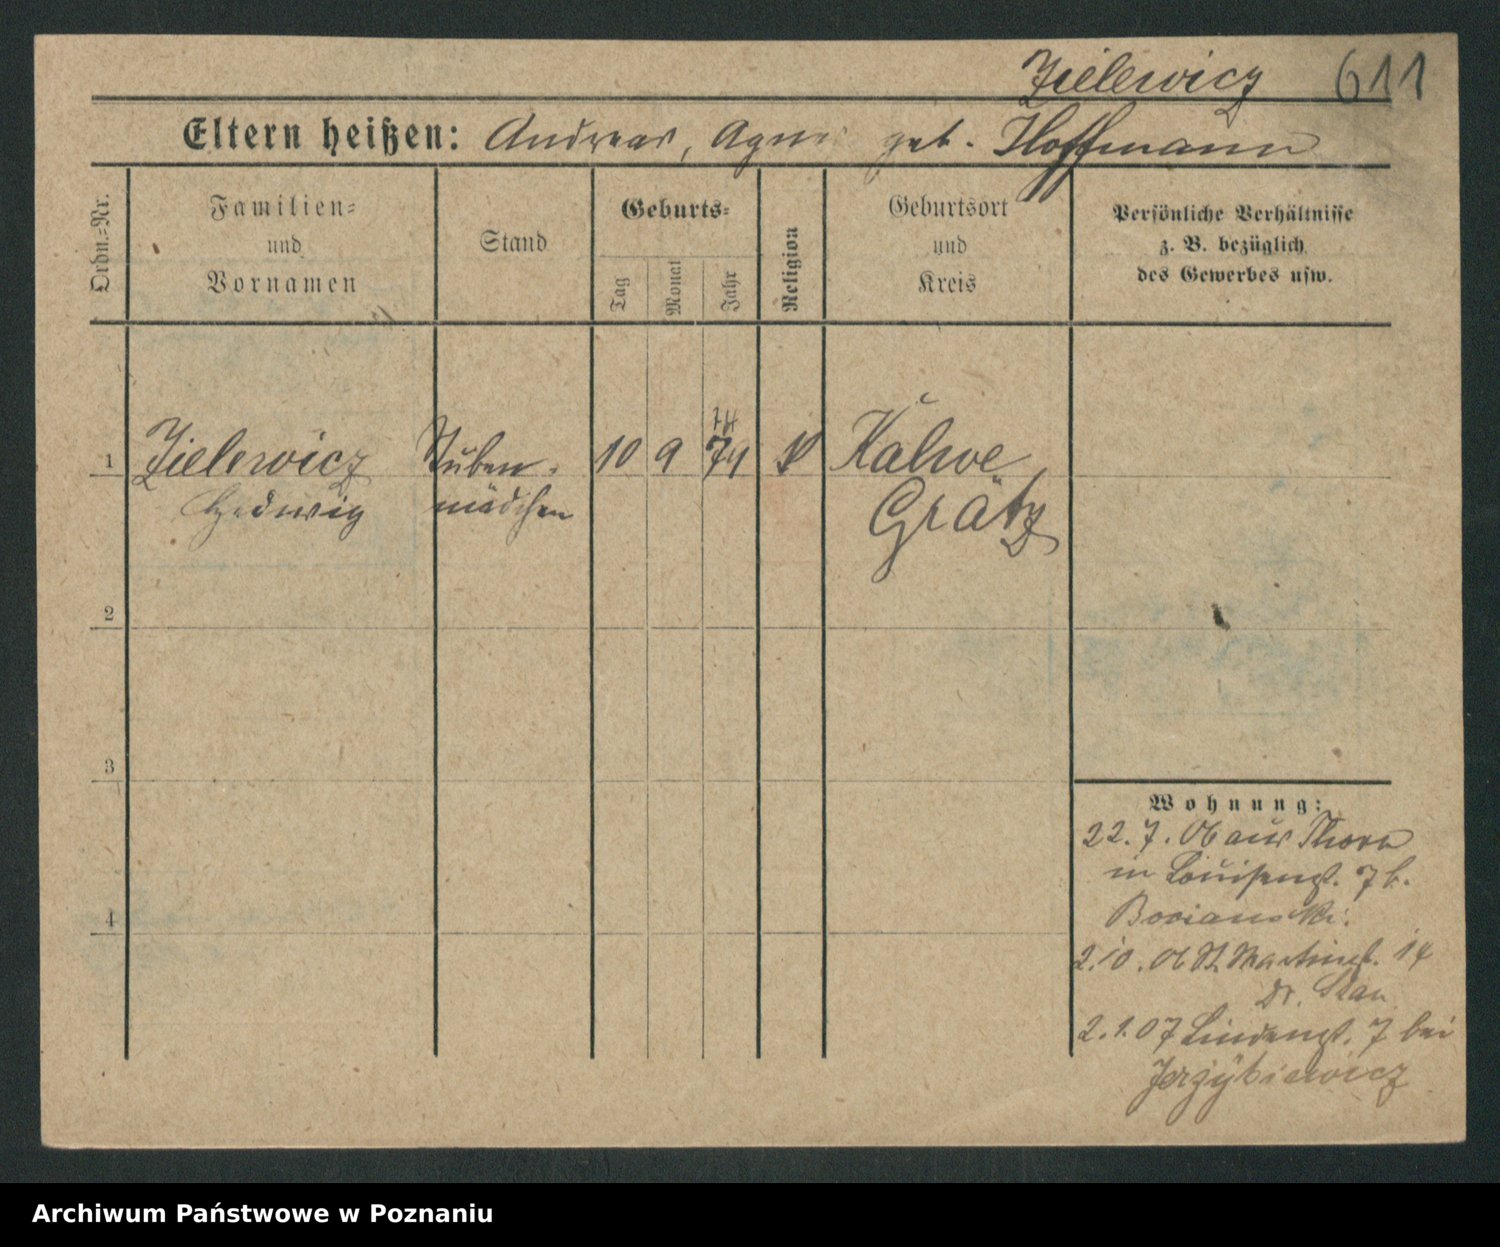 Zielewicz 611
Eltern heißen: Andreas, Agnes geb. Hoffmann
Ordn.=Nr.
Familien=
und
Vornamen
Stand
Geburts=
Tag
Monat
Jahr
Religion
Geburtsort
und
Kreis
Persönliche Verhältnisse
z. B. bezüglich
des Gewerbes usw.
74
1 Zielewicz Stuben- 10 9 79 Kalwe,
Hedwig mädchen Grätz
2
3
4
Wohnung:
22.7.06 aus Thorn
in Louisenst. 7 b.
Bocianski.
2.10.06 St. Martinst. 14
Dr.
2.1.07 Lindenst. 7 bei
Jerzykiewicz
Archiwum Państwowe w Poznaniu